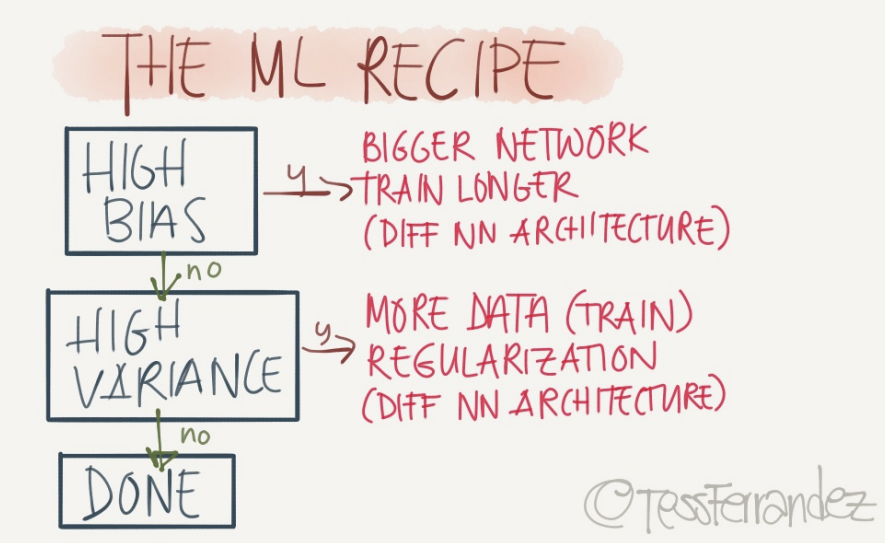 THE ML RECIPE
HIGH
BIAS
y
BIGGER NETWORK
TRAIN LONGER
(DIFF NN ARCHITECTURE)
no
HIGH
VARIANCE
y
MORE DATA (TRAIN)
REGULARIZATION
(DIFF NN ARCHITECTURE)
no
DONE
©TessFerrandez